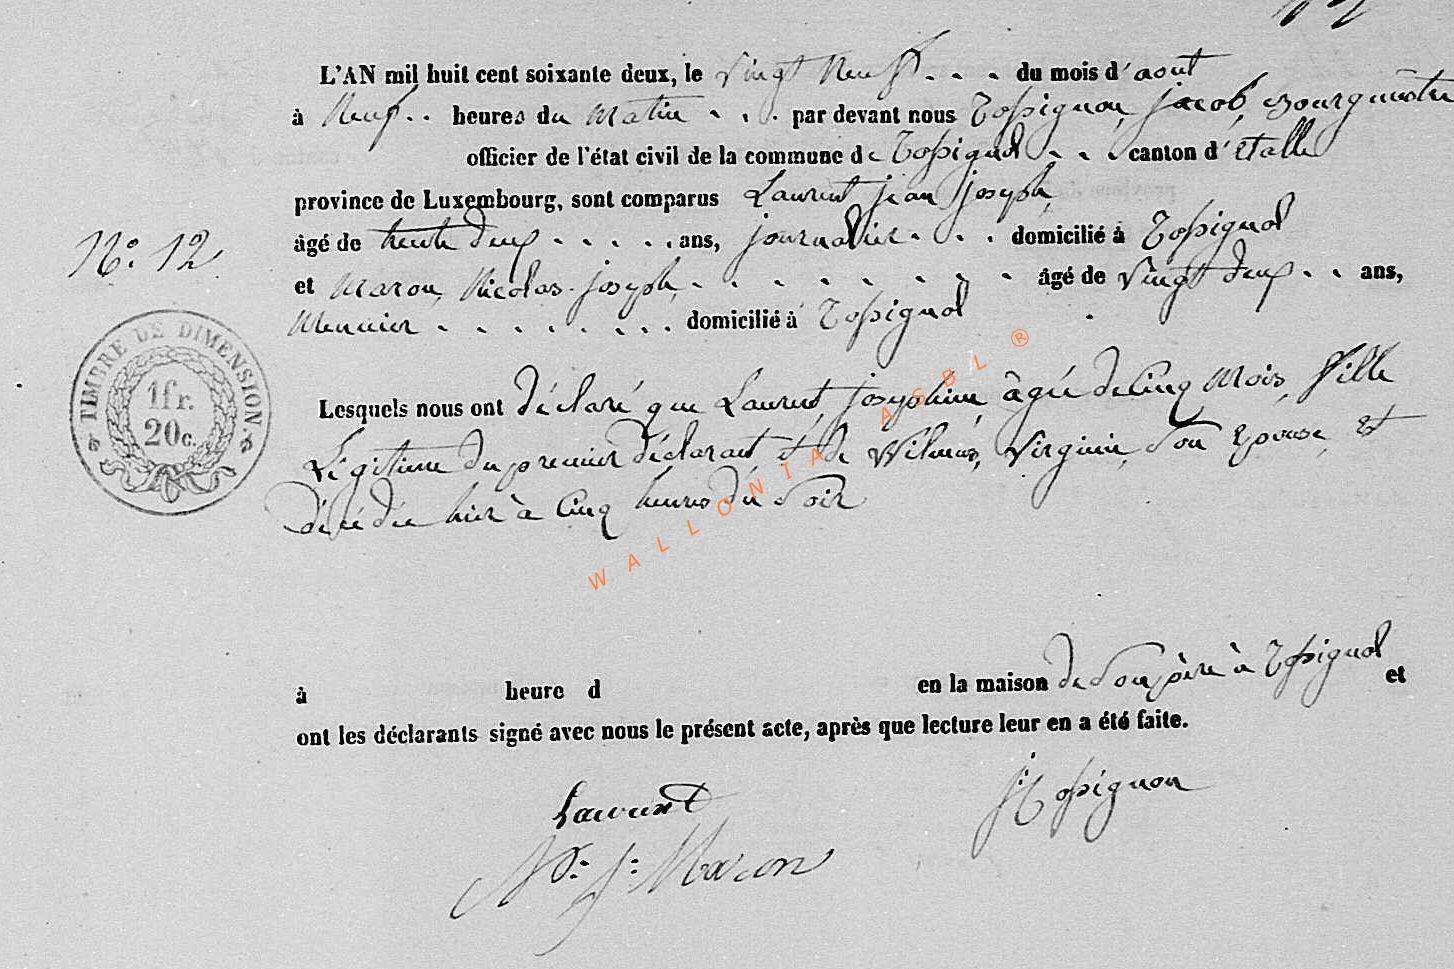 L'AN mil huit cent soixante deux, le vingt neuf . . . du mois d'aout
à neuf . . heures du matin . . . par devant nous Rossignon, jacob, Bourgmestre
officier de l'état civil de la commune de Rossignol . . . canton d'Etalle
province de Luxembourg, sont comparus Laurent jean joseph,
âgé de trente deux . . . . . ans, journalier . . . domicilié à Rossignol
et Maron, Nicolas-joseph, . . . . . . . . âgé de vingt deux . . ans,
Menuier . . . . . . . . domicilié à Rossignol
N°. 12
TIMBRE DE DIMENSION
1fr.
20c.
Lesquels nous ont déclaré que Laurent, josephine, âgée de cinq mois, fille
Légitime du premier déclarant et de Wilmès, Virginie, son Epouse, Est
décédée hier à cinq heures du soir
à heure d en la maison de son père à Rossignol et
ont les déclarants signé avec nous le présent acte, après que lecture leur en a été faite.
Laurent
J. Rossignon
Ns. J. Maron
WALLONIA ASBL ®